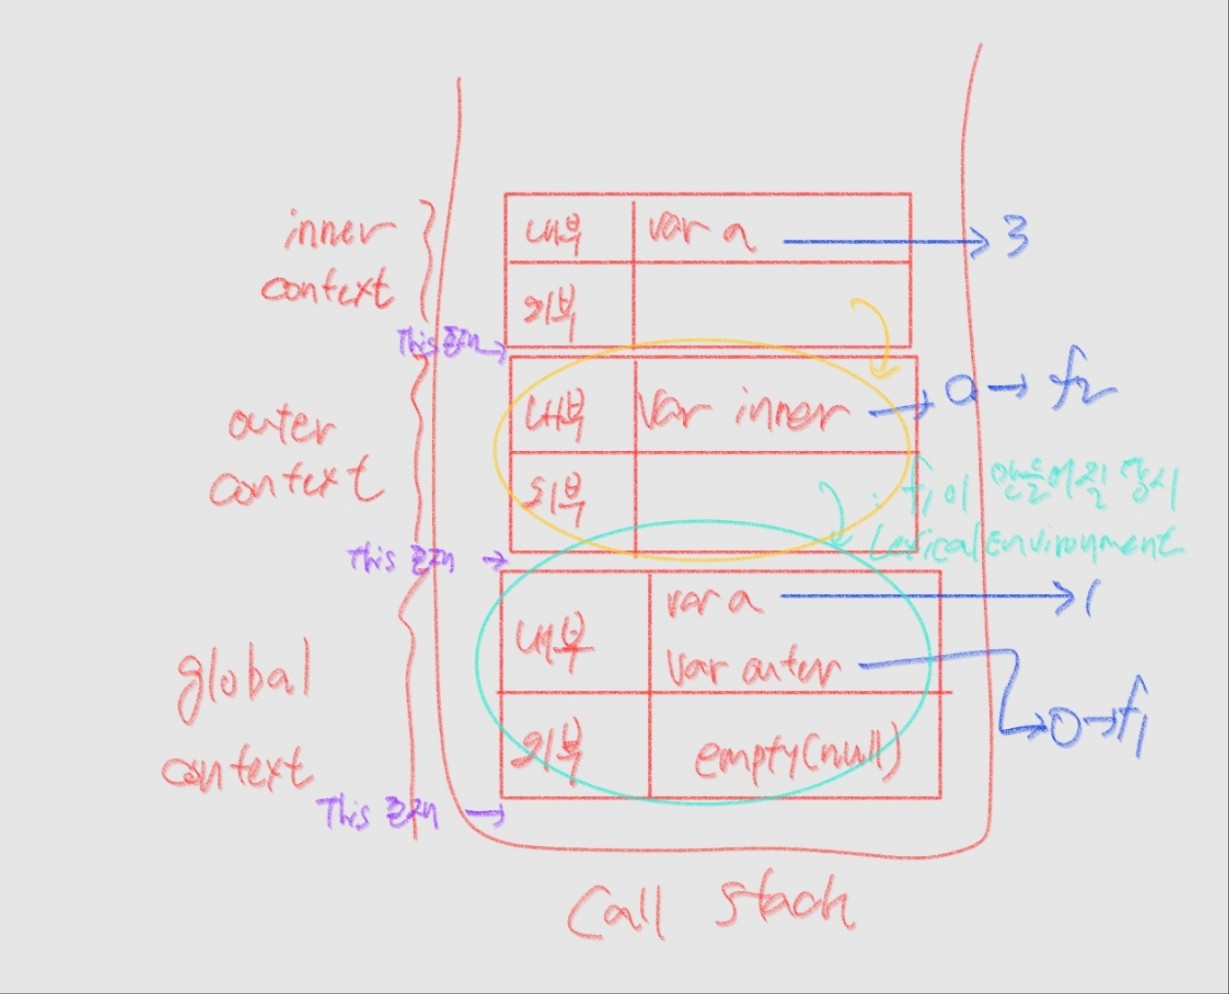 inner
context
내부 var a → 3
외부
This 존재 →
outer
context
내부 var inner → 0 → f2
외부
: f1이 만들어질 당시
Lexical Environment
This 존재 →
global
context
내부 var a → 1
var outer → 0 → f1
외부 empty(null)
This 존재 →
Call Stack